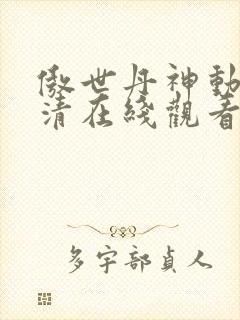 傲世丹神動
清在綫觀看
多宇部貞人